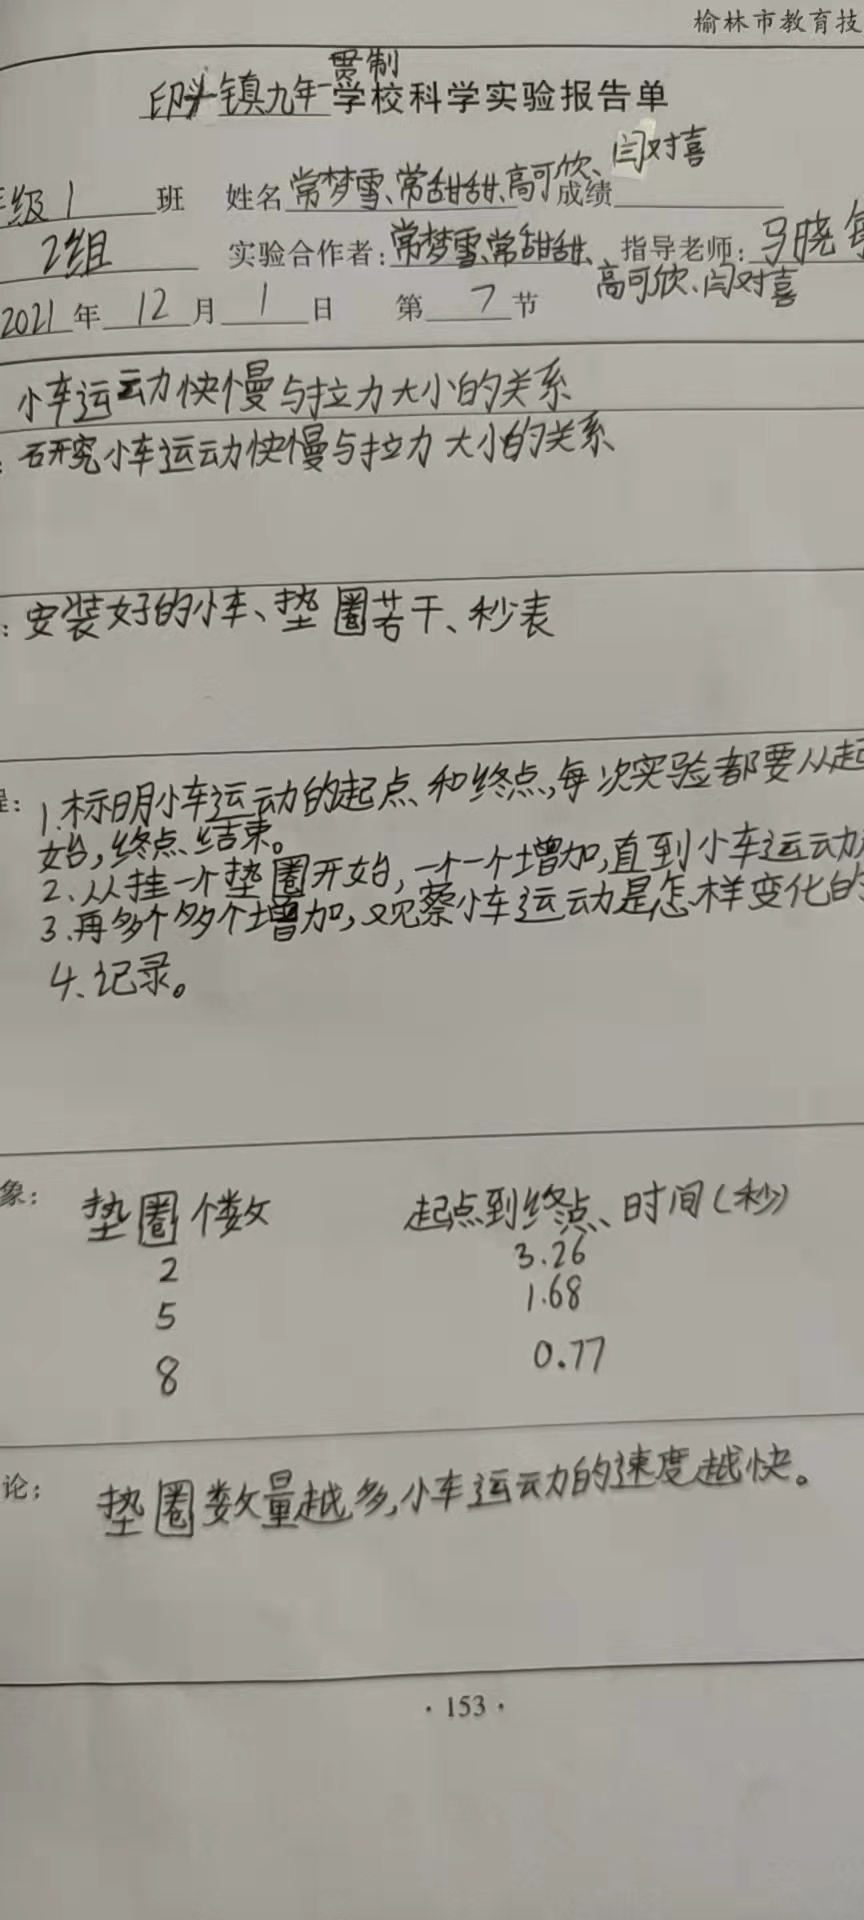 榆林市教育技
贯制
印斗镇九年一学校科学实验报告单
级1班 姓名常梦雪、常甜甜、高可欣、闫对喜 成绩
2组 实验合作者:常梦雪、常甜甜、 指导老师:马晓
高可欣、闫对喜
2021年12月1日 第7节
小车运动快慢与拉力大小的关系
:研究小车运动快慢与拉力大小的关系
:安装好的小车、垫圈若干、秒表
程:1.标明小车运动的起点和终点,每次实验都要从起
始,终点结束。
2.从挂一个垫圈开始,一个一个增加,直到小车运动
3.再多个多个增加,观察小车运动是怎样变化的
4.记录。
象: 垫圈个数 起点到终点时间(秒)
2 3.26
5 1.68
8 0.77
论: 垫圈数量越多,小车运动的速度越快。
·153·